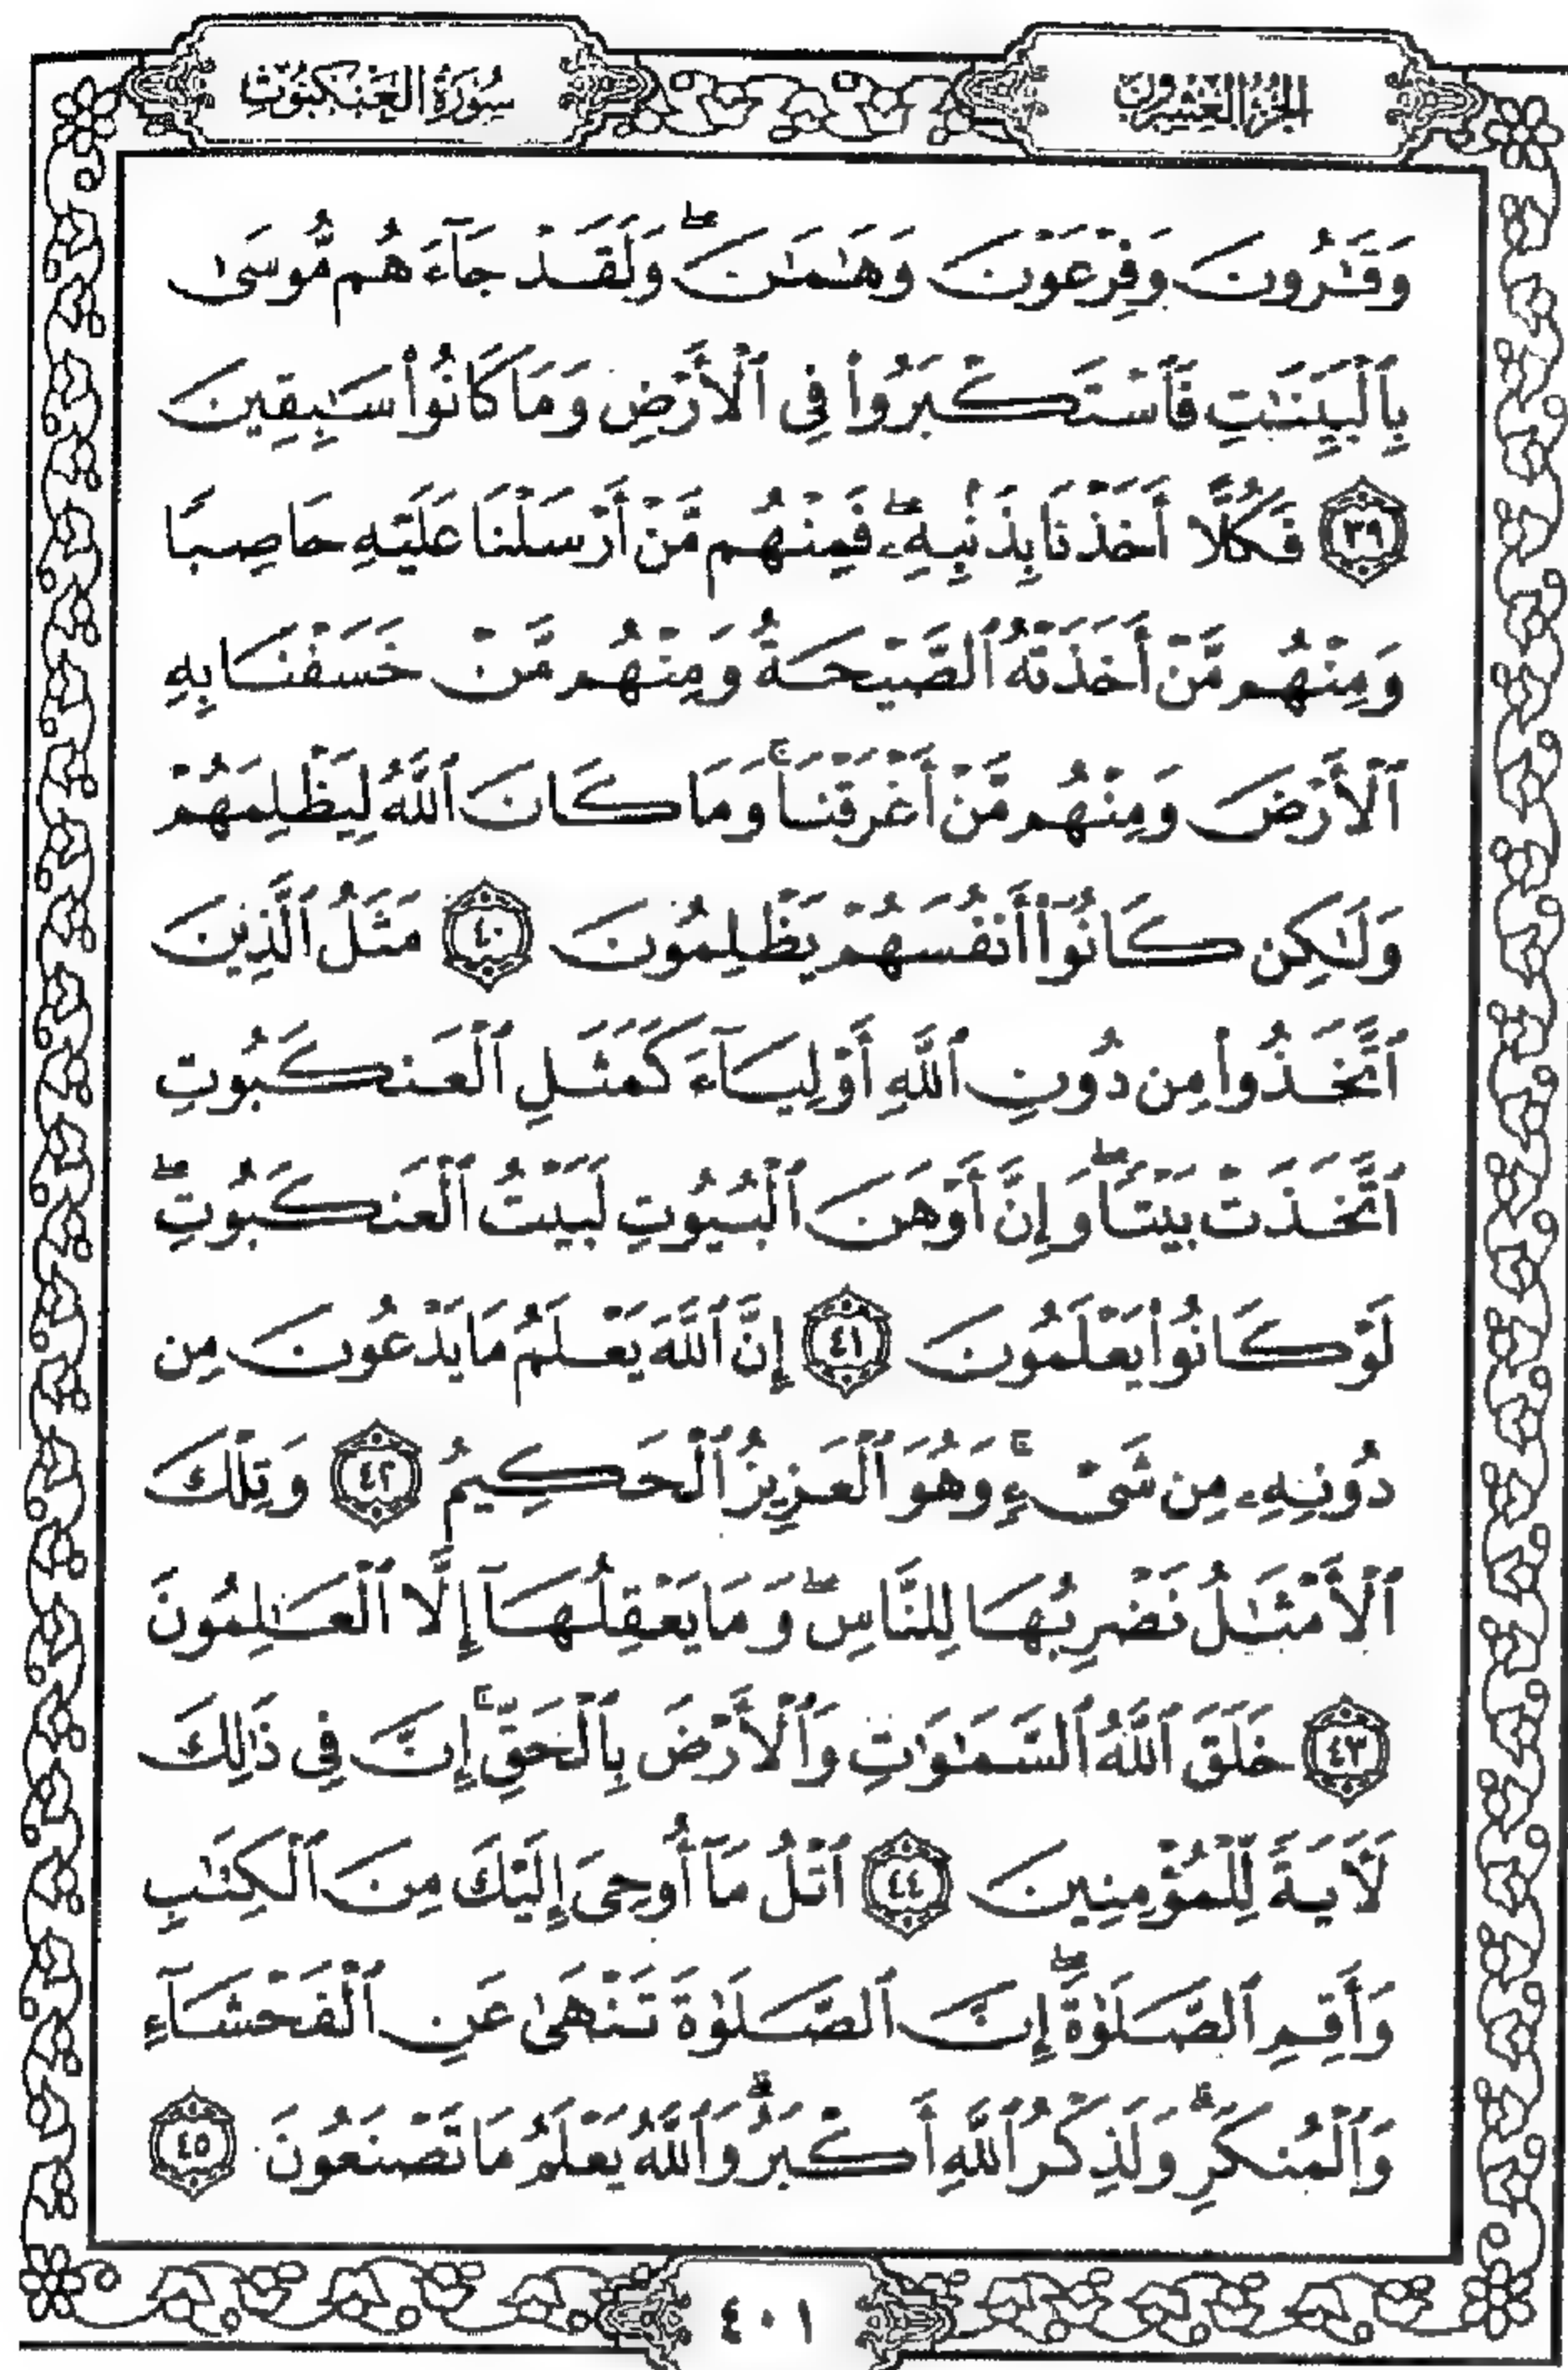 الجزء العشرون
سورة العنكبوت
وَقَـٰرُونَ وَفِرْعَوْنَ وَهَـٰمَـٰنَ ۖ وَلَقَدْ جَآءَهُم مُّوسَىٰ
بِٱلْبَيِّنَـٰتِ فَٱسْتَكْبَرُوا۟ فِى ٱلْأَرْضِ وَمَا كَانُوا۟ سَـٰبِقِينَ
٣٩ فَكُلًّا أَخَذْنَا بِذَنۢبِهِۦ ۖ فَمِنْهُم مَّنْ أَرْسَلْنَا عَلَيْهِ حَاصِبًا
وَمِنْهُم مَّنْ أَخَذَتْهُ ٱلصَّيْحَةُ وَمِنْهُم مَّنْ خَسَفْنَا بِهِ
ٱلْأَرْضَ وَمِنْهُم مَّنْ أَغْرَقْنَا ۚ وَمَا كَانَ ٱللَّهُ لِيَظْلِمَهُمْ
وَلَـٰكِن كَانُوٓا۟ أَنفُسَهُمْ يَظْلِمُونَ ٤٠ مَثَلُ ٱلَّذِينَ
ٱتَّخَذُوا۟ مِن دُونِ ٱللَّهِ أَوْلِيَآءَ كَمَثَلِ ٱلْعَنكَبُوتِ
ٱتَّخَذَتْ بَيْتًا ۖ وَإِنَّ أَوْهَنَ ٱلْبُيُوتِ لَبَيْتُ ٱلْعَنكَبُوتِ ۖ
لَوْ كَانُوا۟ يَعْلَمُونَ ٤١ إِنَّ ٱللَّهَ يَعْلَمُ مَا يَدْعُونَ مِن
دُونِهِۦ مِن شَىْءٍ ۚ وَهُوَ ٱلْعَزِيزُ ٱلْحَكِيمُ ٤٢ وَتِلْكَ
ٱلْأَمْثَـٰلُ نَضْرِبُهَا لِلنَّاسِ ۖ وَمَا يَعْقِلُهَآ إِلَّا ٱلْعَـٰلِمُونَ
٤٣ خَلَقَ ٱللَّهُ ٱلسَّمَـٰوَٰتِ وَٱلْأَرْضَ بِٱلْحَقِّ ۚ إِنَّ فِى ذَٰلِكَ
لَـَٔايَةً لِّلْمُؤْمِنِينَ ٤٤ ٱتْلُ مَآ أُوحِىَ إِلَيْكَ مِنَ ٱلْكِتَـٰبِ
وَأَقِمِ ٱلصَّلَوٰةَ ۖ إِنَّ ٱلصَّلَوٰةَ تَنْهَىٰ عَنِ ٱلْفَحْشَآءِ
وَٱلْمُنكَرِ ۗ وَلَذِكْرُ ٱللَّهِ أَكْبَرُ ۗ وَٱللَّهُ يَعْلَمُ مَا تَصْنَعُونَ ٤٥
٤٠١